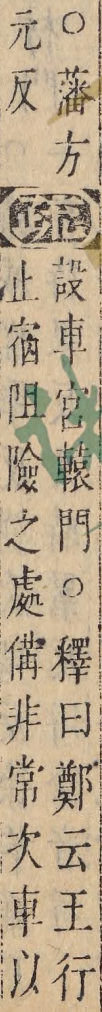 ○藩方
元反
疏
設車宮轅門○釋曰鄭云王行
止宿阻險之處備非常次車以